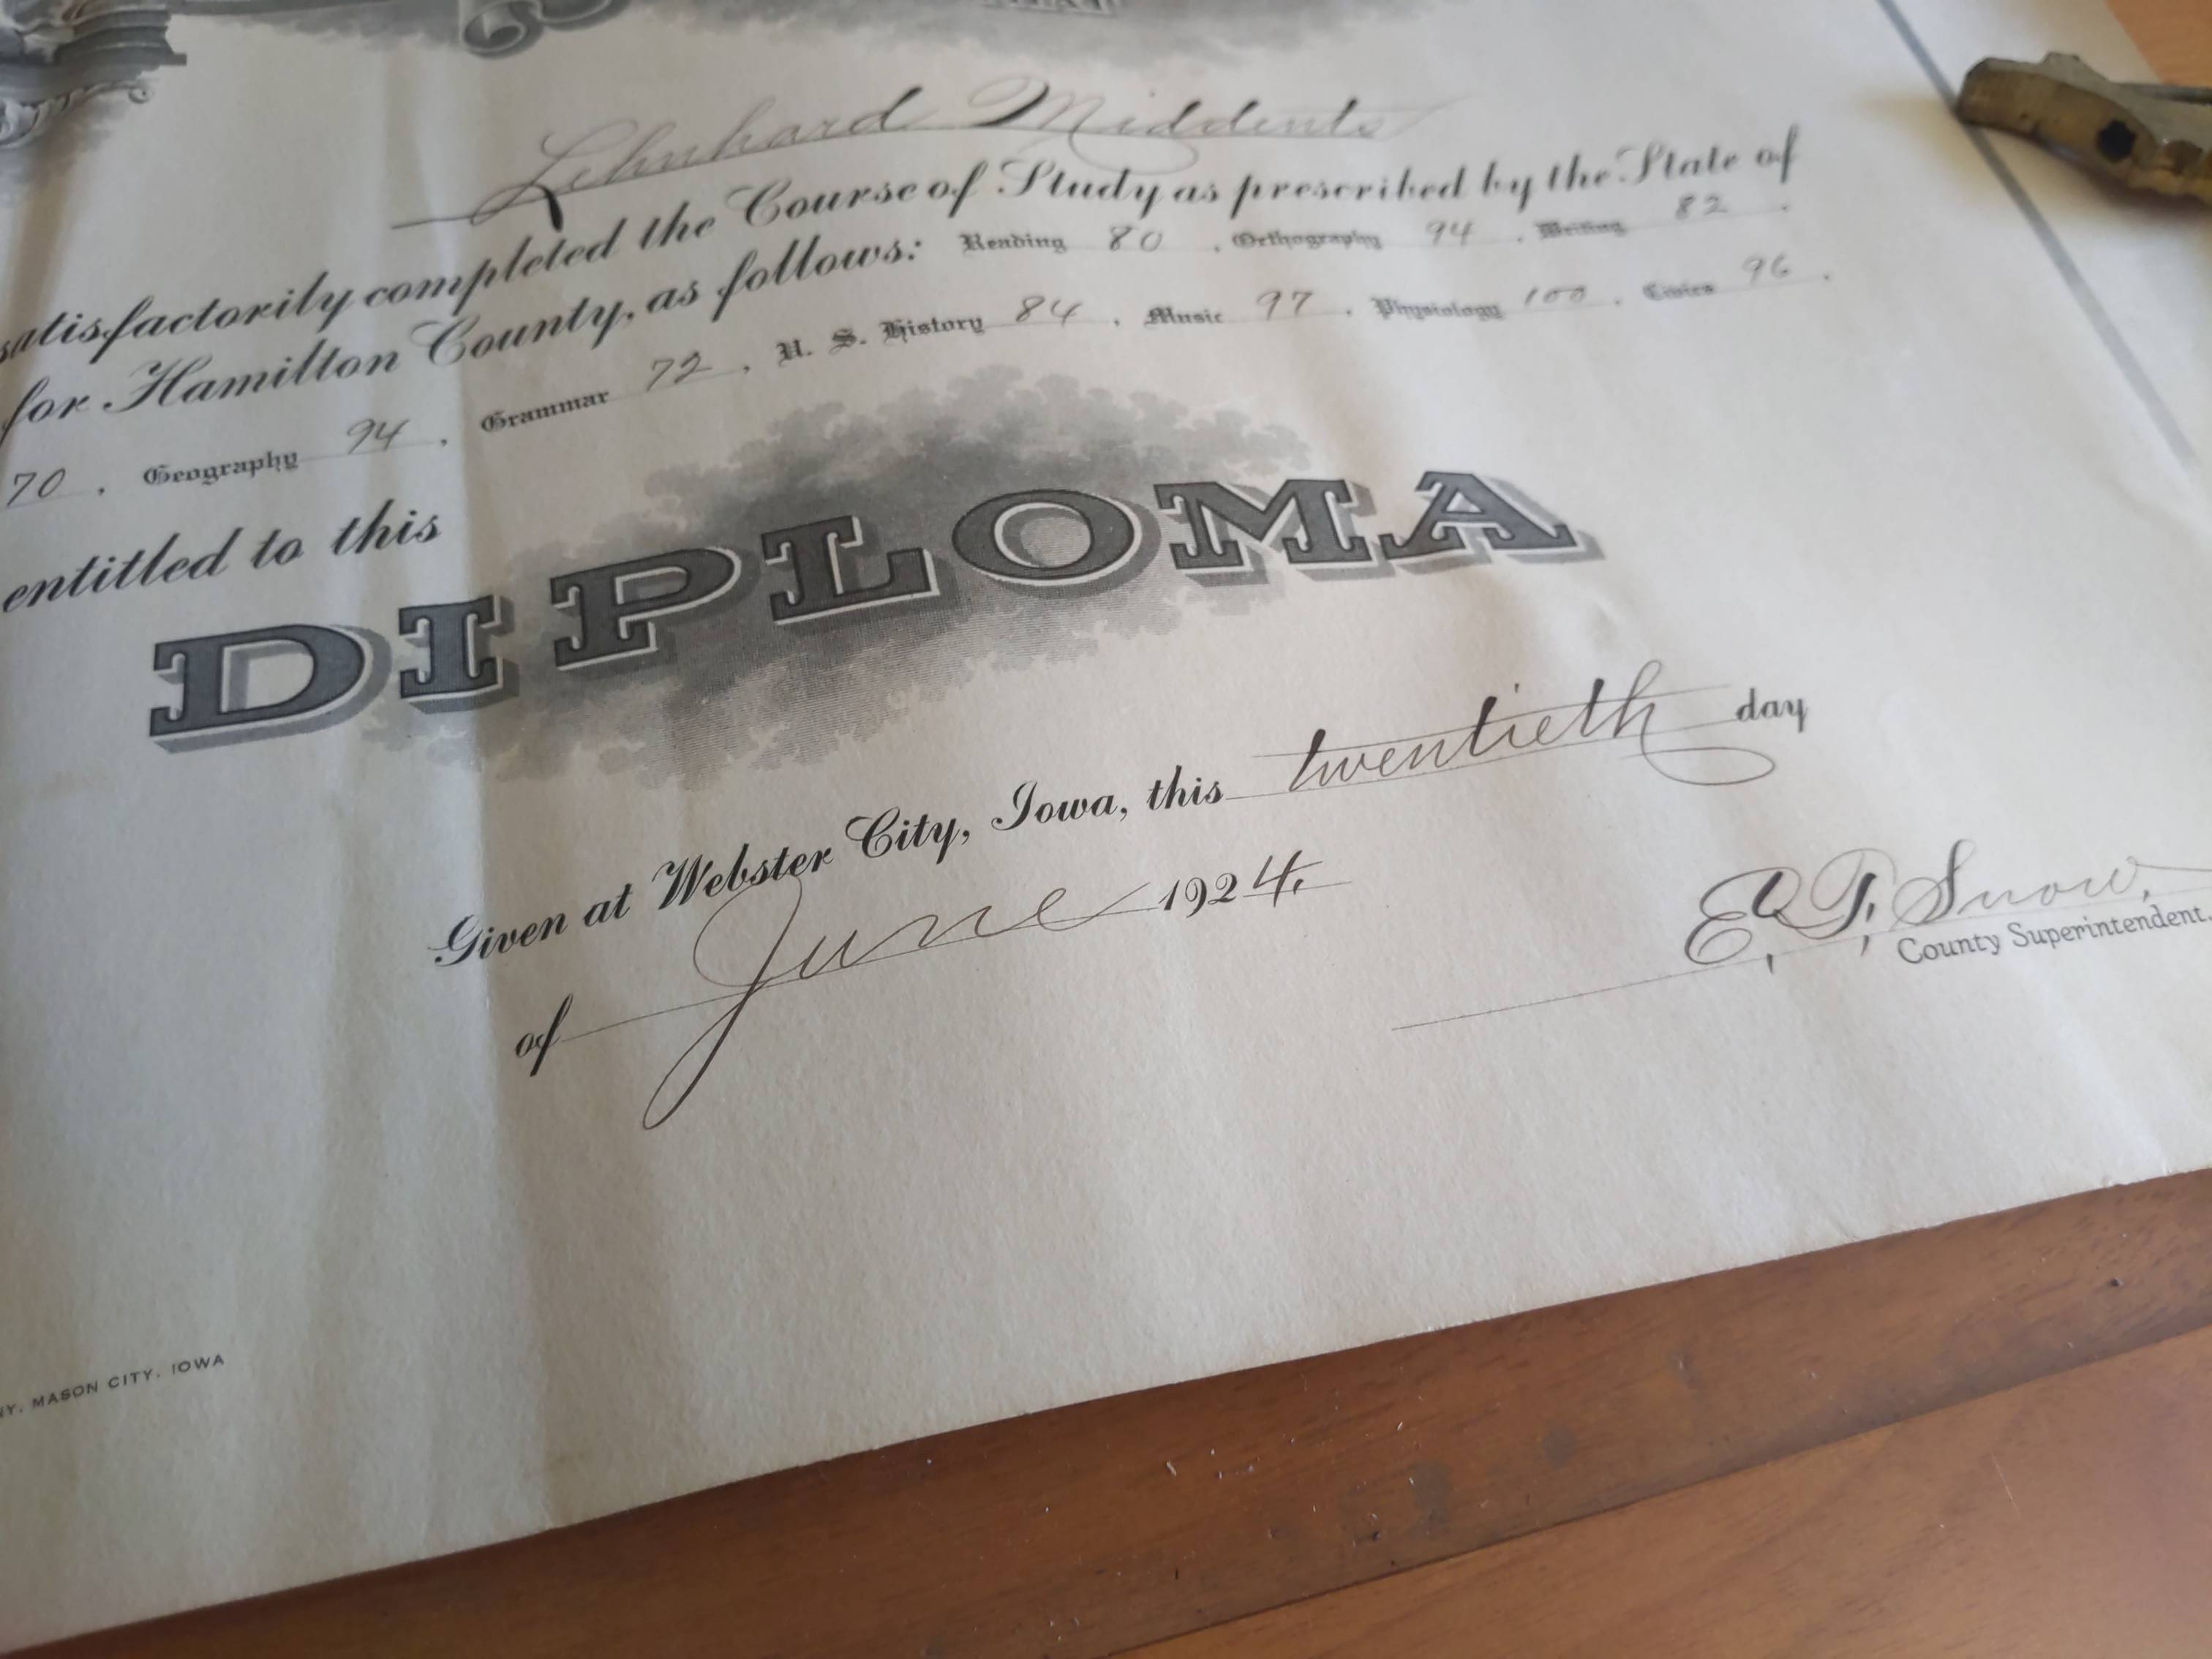 Lehnhard Middents
satisfactorily completed the Course of Study as prescribed by the State of
for Hamilton County, as follows: Reading 80 . Orthography 94 . Writing 82 .
70 , Geography 94 , Grammar 72 , U. S. History 84 , Music 97 , Physiology 100 , Civics 96 .
entitled to this
DIPLOMA
Given at Webster City, Iowa, this twentieth day
of June 1924.
E. F. Snow,
County Superintendent.
MASON CITY, IOWA